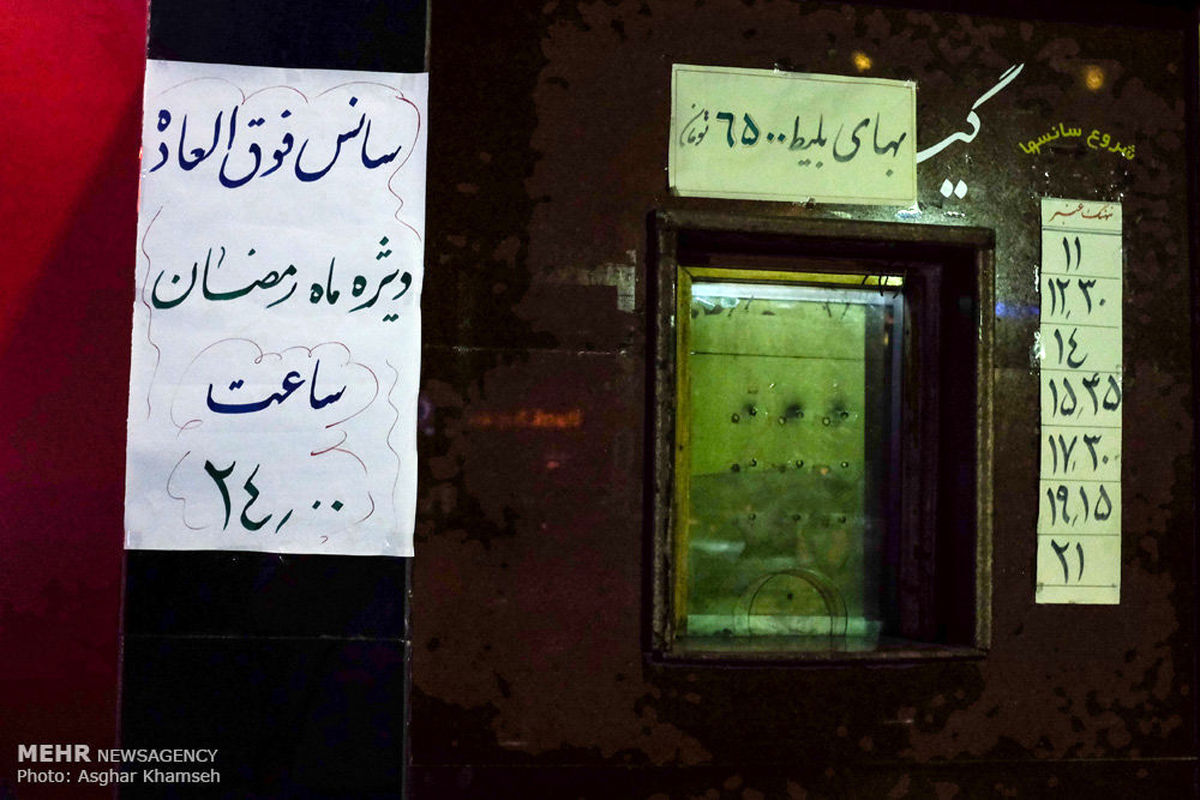 سانس فوق العاده
ویژه ماه رمضان
ساعت
۲٤٫۰۰
بهای بلیط ٦۵۰۰ تومان
شروع سانسها
نهنگ عنبر
۱۱
۱۲٫۳۰
۱٤
۱۵٫٤۵
۱۷٫۳۰
۱۹٫۱۵
۲۱
MEHR NEWSAGENCY
Photo: Asghar Khamseh